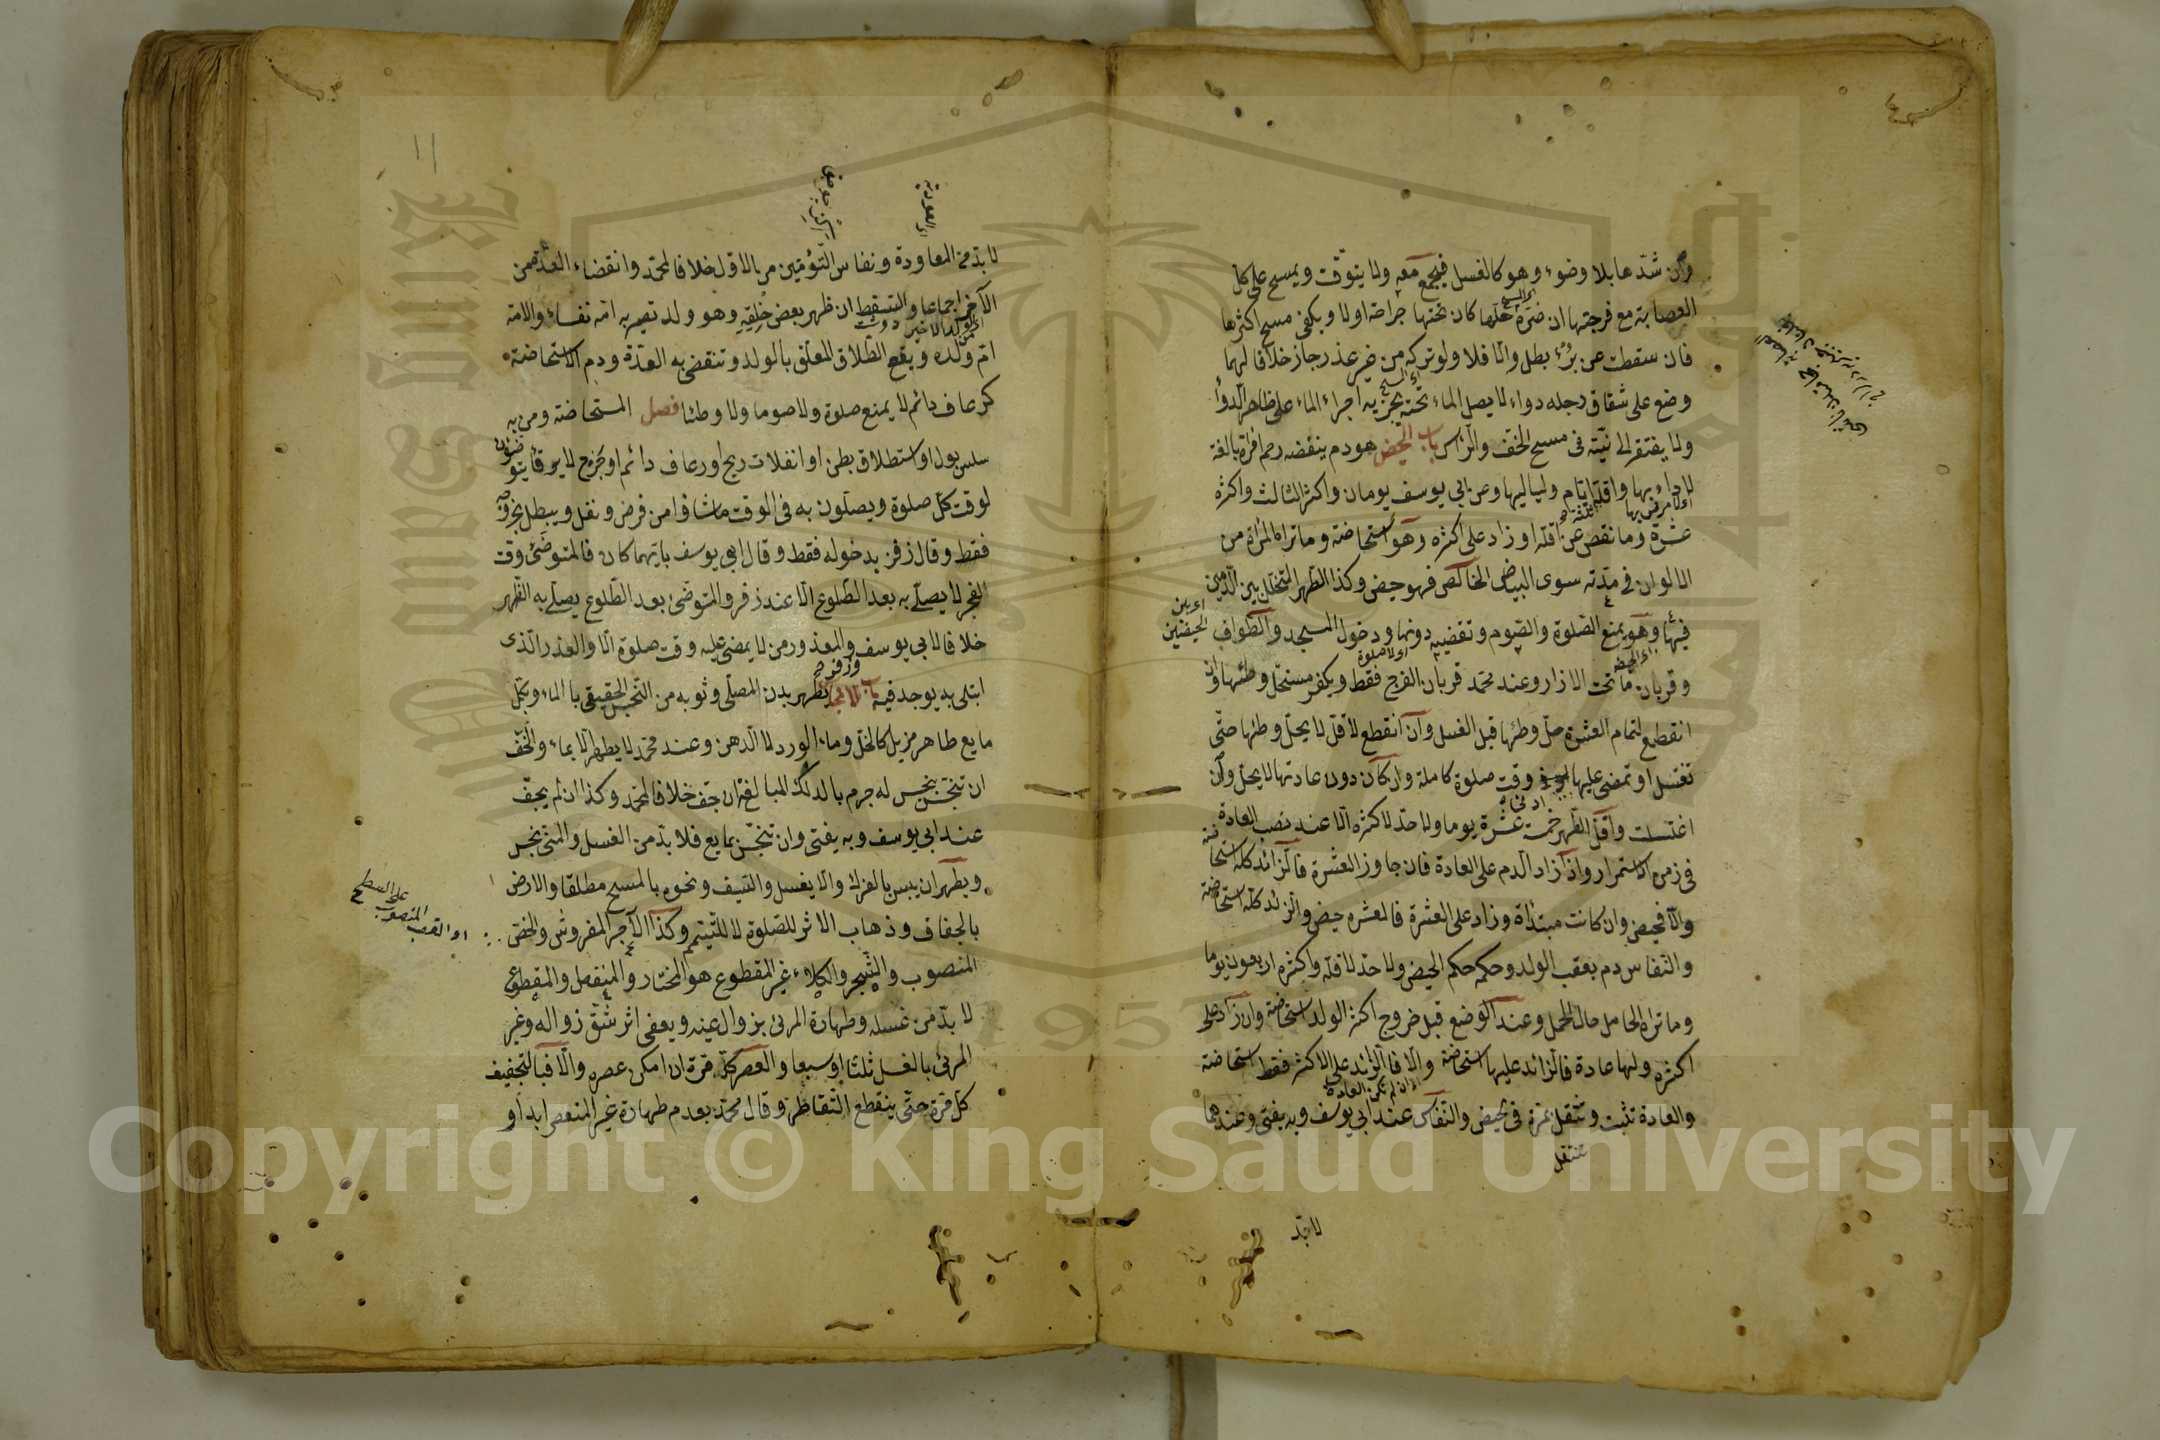 وان شدها بلا وضوء وهو كالغسل فيجمع معه ولا يتوقت ويمسح على كل
العصابة مع فرجتها ان ضره حلها كان تحتها جراحة اولا ويكفي مسح اكثرها
فان سقطت عن برء بطل والا فلا ولو تركه من غير عذر جاز خلافا لهما
وضع على شقاق رجله دواء لا يصل الماء تحته يجزيه اجراء الماء على ظاهر الدواء
ولا يفتقر الى نية في مسح الخف والرأس باب الحيض هو دم ينفضه رحم امرأة بالغة
لا داء بها واقله ثلثة ايام ولياليها وعن ابي يوسف يومان واكثر الثالث واكثره
عشرة وما نقص عن اقله او زاد على اكثره فهو استحاضة وما تراه المرأة من
الالوان في مدته سوى البياض الخالص فهو حيض وكذا الطهر المتخلل بين الدمين
فيها وهو يمنع الصلوة والصوم وتقضيه دونها ودخول المسجد والطواف
اى بين الحيضتين
وقربان ما تحت الازار وعند محمد قربان الفرج فقط ويكفر مستحل وطئها وان
انقطع لتمام العشرة حل وطئها قبل الغسل وان انقطع لاقل لا يحل وطئها حتى
تغتسل او تمضى عليها وقت صلوة كاملة وان كان دون عادتها لا يحل وان
ادنى
اغتسلت واقل الطهر خمسة عشرة يوما ولا حد لاكثره الا عند نصب العادة
في زمن الاستمرار واذا زاد الدم على العادة فان جاوز العشرة فالزائد كله استحاضة
والا فحيض وان كانت مبتدأة وزاد على العشرة فالعشره حيض والزائد كله استحاضة
والنفاس دم يعقب الولد وحكمه حكم الحيض ولا حد لاقله واكثره اربعون يوما
وما تراه الحامل حال الحمل وعند الوضع قبل خروج اكثر الولد استحاضة وان زاد على
اكثره ولها عادة فالزائد عليها استحاضة والا فالزائد على الاكثر فقط استحاضة
اى ان لم تكن العادة
والعادة تثبت وتنتقل بمرة في الحيض والنفاس عند ابي يوسف وبه يفتى وعندهما
لا بد
١١
لا بد من المعاودة ونفاس التوءمين من الاول خلافا لمحمد وانقضاء العدة من
الآخر اجماعا والسقط ان ظهر بعض خلقه وهو ولد تصير به امه نفساء والامة
ام ولد ويقع الطلاق المعلق بالولد وتنقضى به العدة ودم الاستحاضة
كرعاف دائم لا يمنع صلوة ولا صوما ولا وطئا فصل المستحاضة ومن به
سلس بول او استطلاق بطن او انفلات ريح او رعاف دائم او جرح لا يرقأ يتوضؤن
لوقت كل صلوة ويصلون به في الوقت ما شاؤا من فرض ونفل ويبطل بخروجه
فقط وقال زفر بدخوله فقط وقال ابي يوسف بايهما كان فالمتوضئ وقت
الفجر لا يصلى به بعد الطلوع الا عند زفر والمتوضئ بعد الطلوع يصلى به الظهر
خلافا لابي يوسف والمعذور من لا يمضى عليه وقت صلوة الا والعذر الذى
وزفر
ابتلى به يوجد فيه باب الانجاس يطهر بدن المصلى وثوبه من النجس الحقيقى بالماء وبكل
مايع طاهر مزيل كالخل وماء الورد لا الدهن وعند محمد لا يطهر الا بماء والخف
ان تنجس بنجس له جرم بالدلك المبالغ ان جف خلافا لمحمد وكذا ان لم يجف
عند ابي يوسف وبه يفتى وان تنجس بمايع فلا بد من الغسل والمنى نجس
ويطهر ان يبس بالفرك والا يغسل والسيف ونحوه بالمسح مطلقا والارض
بالجفاف وذهاب الاثر للصلوة لا للتيمم وكذا الآجر المفروش والخص
المنصوب والشجر والكلاء غير المقطوع هو المختار والمنفصل والمقطوع
لا بد من غسله وطهارة المرئى بزوال عينه ويعفى اثر شق زواله وغير
المرئى بالغسل ثلثا او سبعا والعصر كل مرة ان امكن عصره والا فبالتجفيف
كل مرة حتى ينقطع التقاطر وقال محمد بعدم طهارة غير المنعصر ابدا و
Copyright © King Saud University
1957